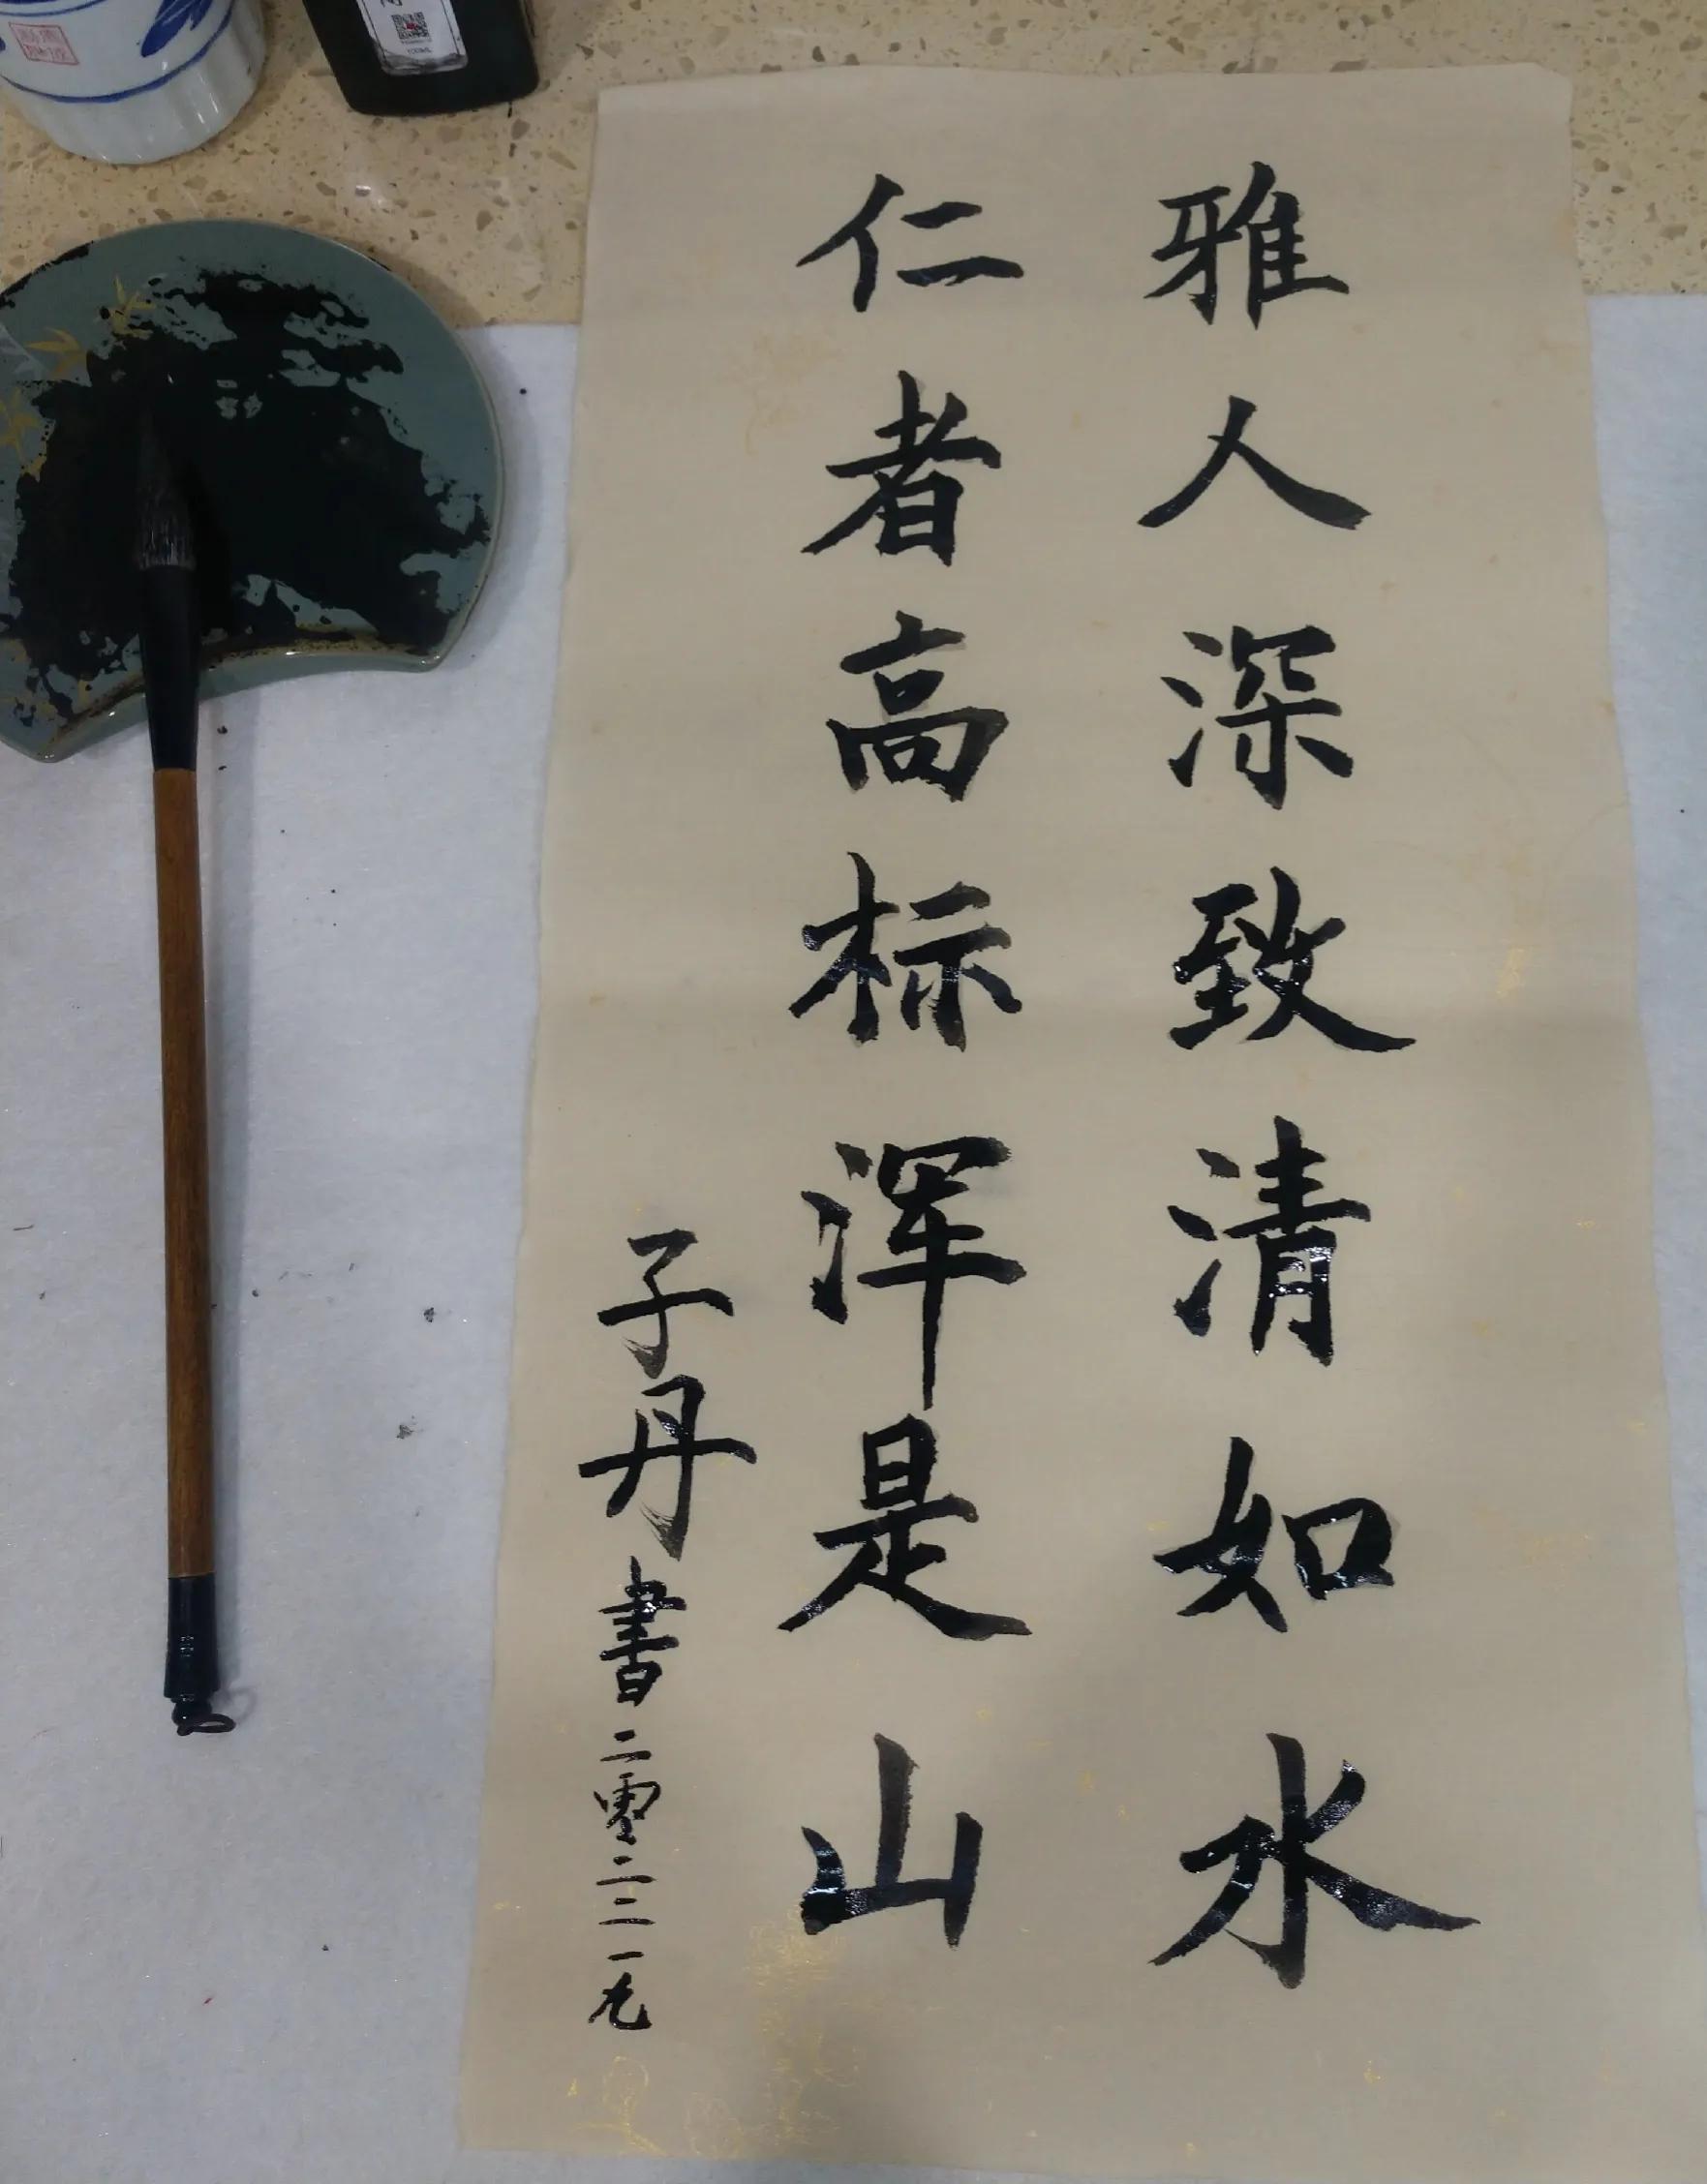 雅人深致清如水
仁者高标浑是山
子丹書二零二二一九